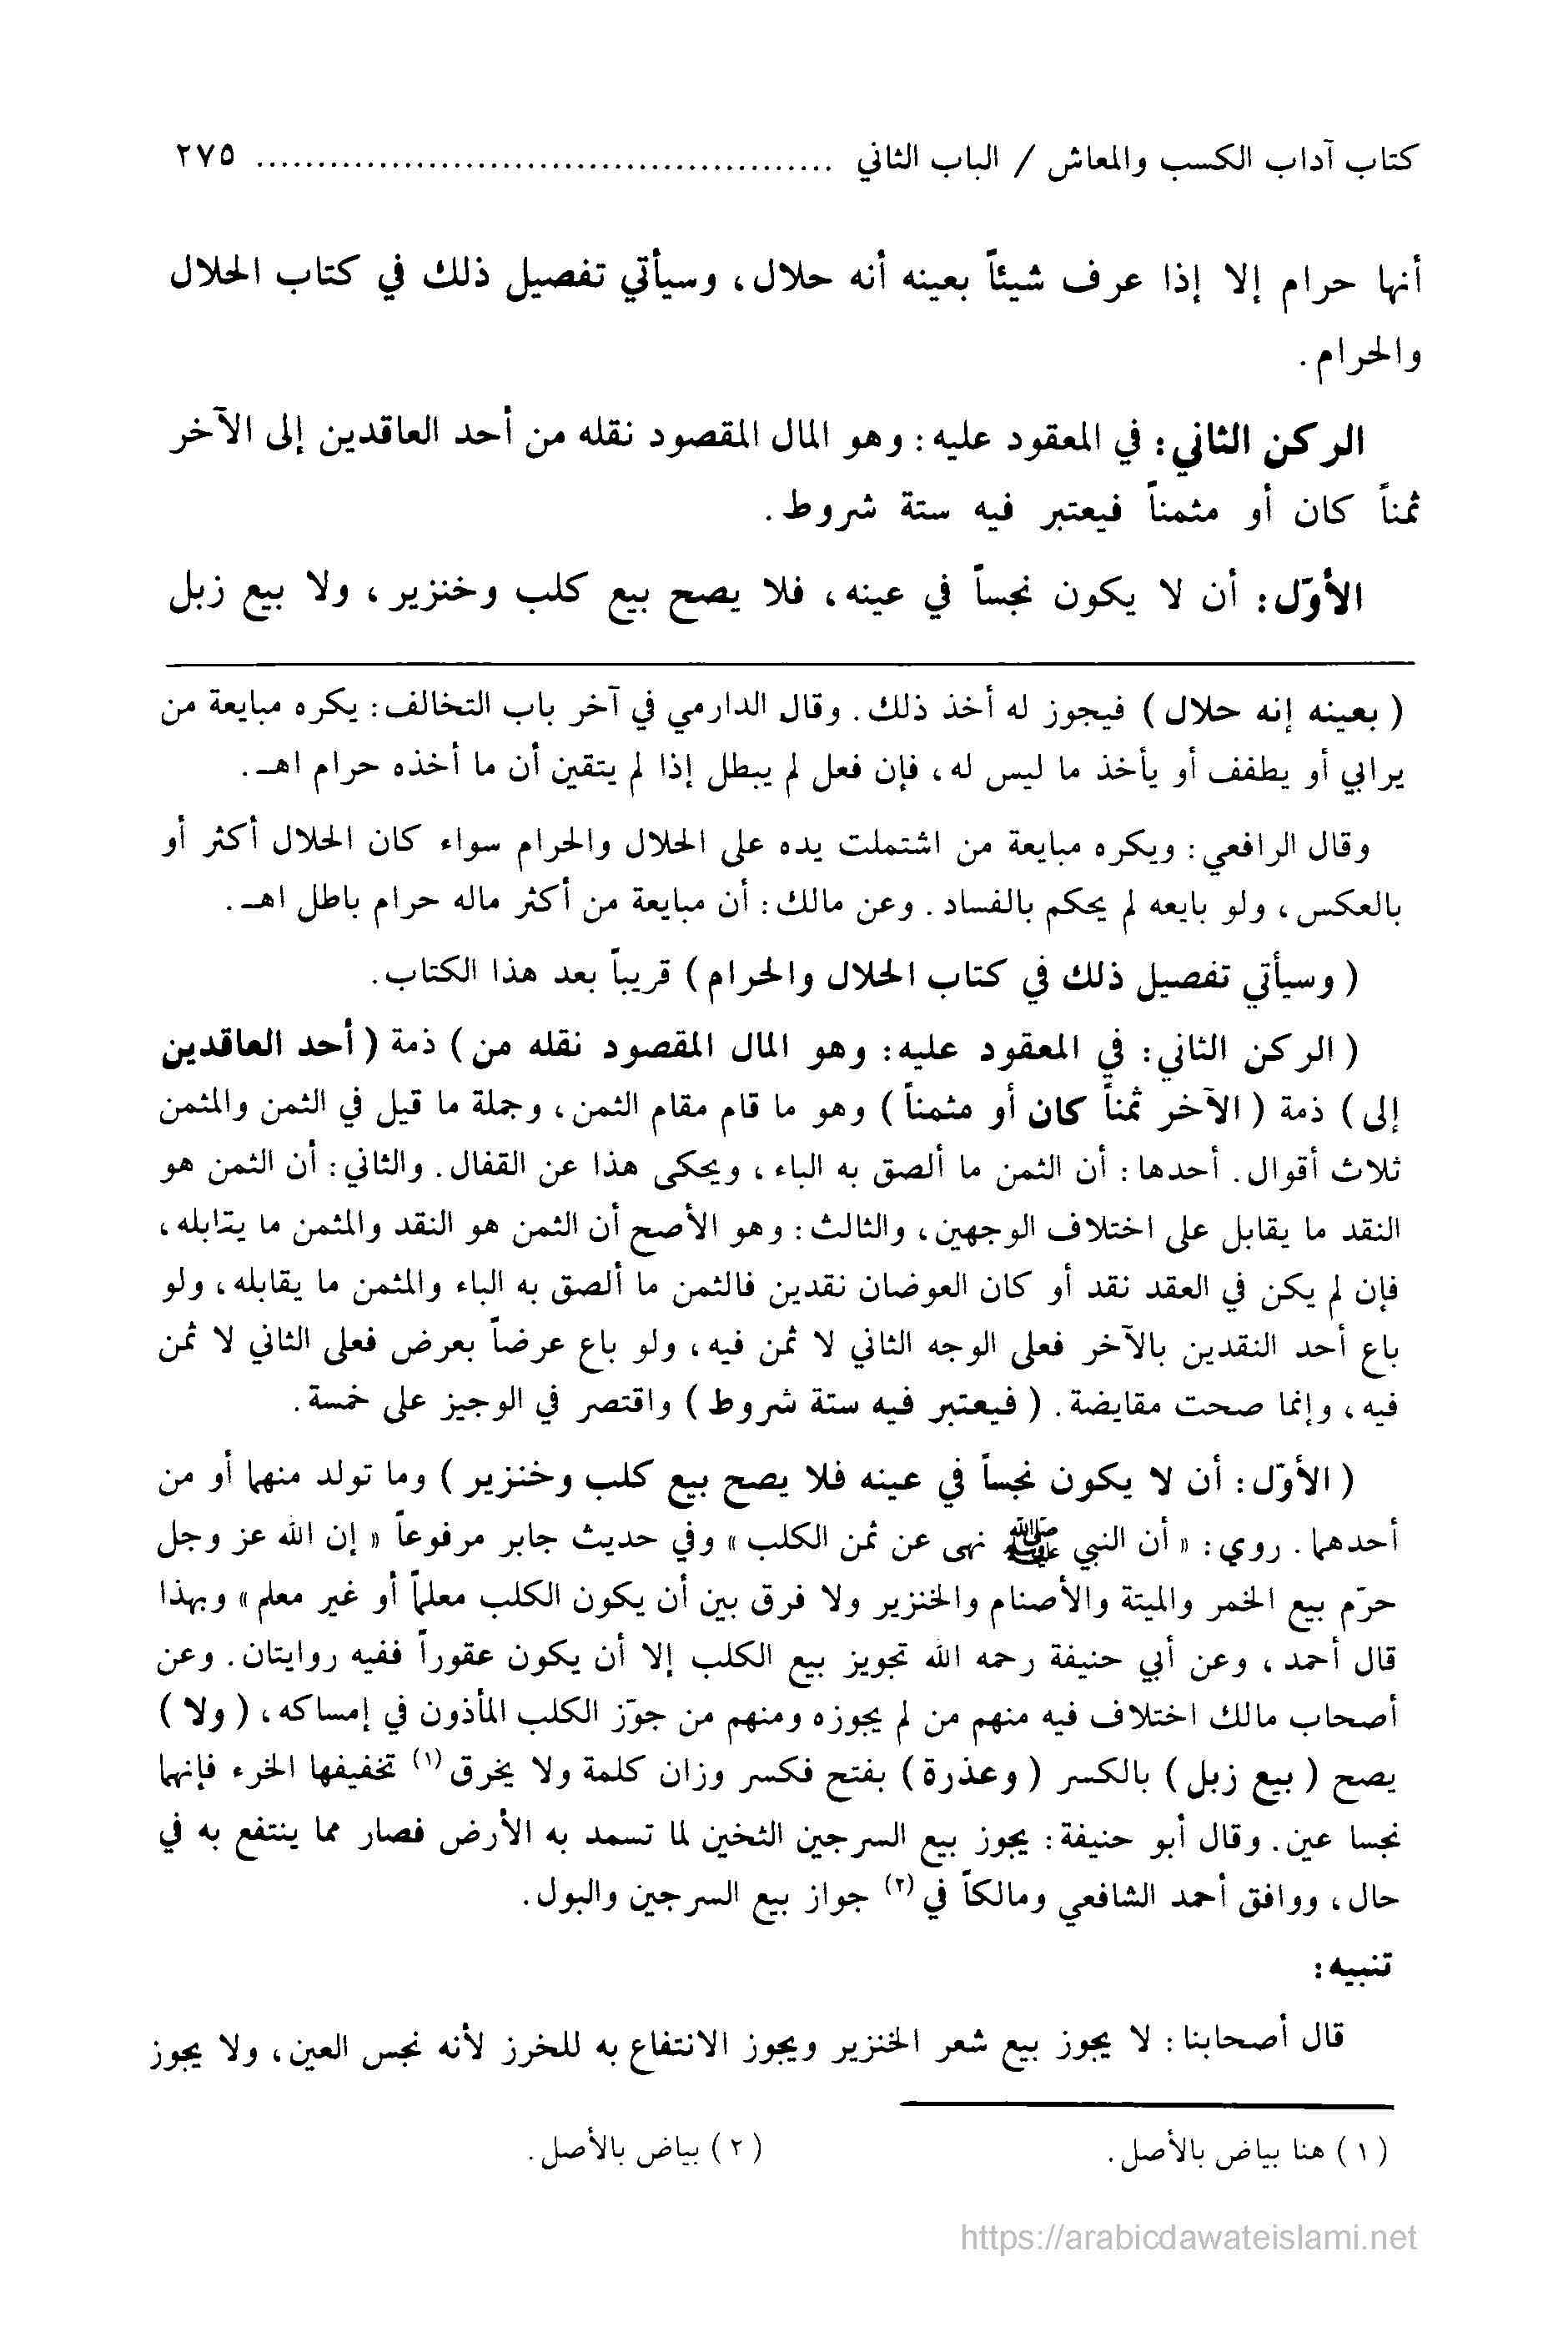 كتاب آداب الكسب والمعاش / الباب الثاني ................................................ ٢٧٥
أنها حرام إلا إذا عرف شيئاً بعينه أنه حلال، وسيأتي تفصيل ذلك في كتاب الحلال
والحرام.
الركن الثاني: في المعقود عليه: وهو المال المقصود نقله من أحد العاقدين إلى الآخر
ثمناً كان أو مثمناً فيعتبر فيه ستة شروط.
الأوّل: أن لا يكون نجساً في عينه، فلا يصح بيع كلب وخنزير، ولا بيع زبل
( بعينه إنه حلال ) فيجوز له أخذ ذلك. وقال الدارمي في آخر باب التخالف: يكره مبايعة من
يرابي أو يطفف أو يأخذ ما ليس له، فإن فعل لم يبطل إذا لم يتقين أن ما أخذه حرام اهـ.
وقال الرافعي: ويكره مبايعة من اشتملت يده على الحلال والحرام سواء كان الحلال أكثر أو
بالعكس، ولو بايعه لم يحكم بالفساد. وعن مالك: أن مبايعة من أكثر ماله حرام باطل اهـ.
( وسيأتي تفصيل ذلك في كتاب الحلال والحرام ) قريباً بعد هذا الكتاب.
( الركن الثاني: في المعقود عليه: وهو المال المقصود نقله من ) ذمة ( أحد العاقدين
إلى ) ذمة ( الآخر ثمناً كان أو مثمناً ) وهو ما قام مقام الثمن، وجملة ما قيل في الثمن والمثمن
ثلاث أقوال. أحدها: أن الثمن ما ألصق به الباء، ويحكى هذا عن القفال. والثاني: أن الثمن هو
النقد ما يقابل على اختلاف الوجهين، والثالث: وهو الأصح أن الثمن هو النقد والمثمن ما يتابله،
فإن لم يكن في العقد نقد أو كان العوضان نقدين فالثمن ما ألصق به الباء والمثمن ما يقابله، ولو
باع أحد النقدين بالآخر فعلى الوجه الثاني لا ثمن فيه، ولو باع عرضاً بعرض فعلى الثاني لا ثمن
فيه، وإنما صحت مقايضة. ( فيعتبر فيه ستة شروط ) واقتصر في الوجيز على خمسة.
( الأوّل: أن لا يكون نجساً في عينه فلا يصح بيع كلب وخنزير ) وما تولد منهما أو من
أحدهما. روي: « أن النبي ﷺ نهى عن ثمن الكلب » وفي حديث جابر مرفوعاً « إن الله عز وجل
حرّم بيع الخمر والميتة والأصنام والخنزير ولا فرق بين أن يكون الكلب معلماً أو غير معلم » وبهذا
قال أحمد، وعن أبي حنيفة رحمه الله تجويز بيع الكلب إلا أن يكون عقوراً ففيه روايتان. وعن
أصحاب مالك اختلاف فيه منهم من لم يجوزه ومنهم من جوّز الكلب المأذون في إمساكه، ( ولا )
يصح ( بيع زبل ) بالكسر ( وعذرة ) بفتح فكسر وزان كلمة ولا يخرق (١) تخفيفها الخرء فإنهما
نجسا عين. وقال أبو حنيفة: يجوز بيع السرجين الثخين لما تسمد به الأرض فصار مما ينتفع به في
حال، ووافق أحمد الشافعي ومالكاً في (٢) جواز بيع السرجين والبول.
تنبيه:
قال أصحابنا: لا يجوز بيع شعر الخنزير ويجوز الانتفاع به للخرز لأنه نجس العين، ولا يجوز
( ١ ) هنا بياض بالأصل. ( ٢ ) بياض بالأصل.
https://arabicdawateislami.net